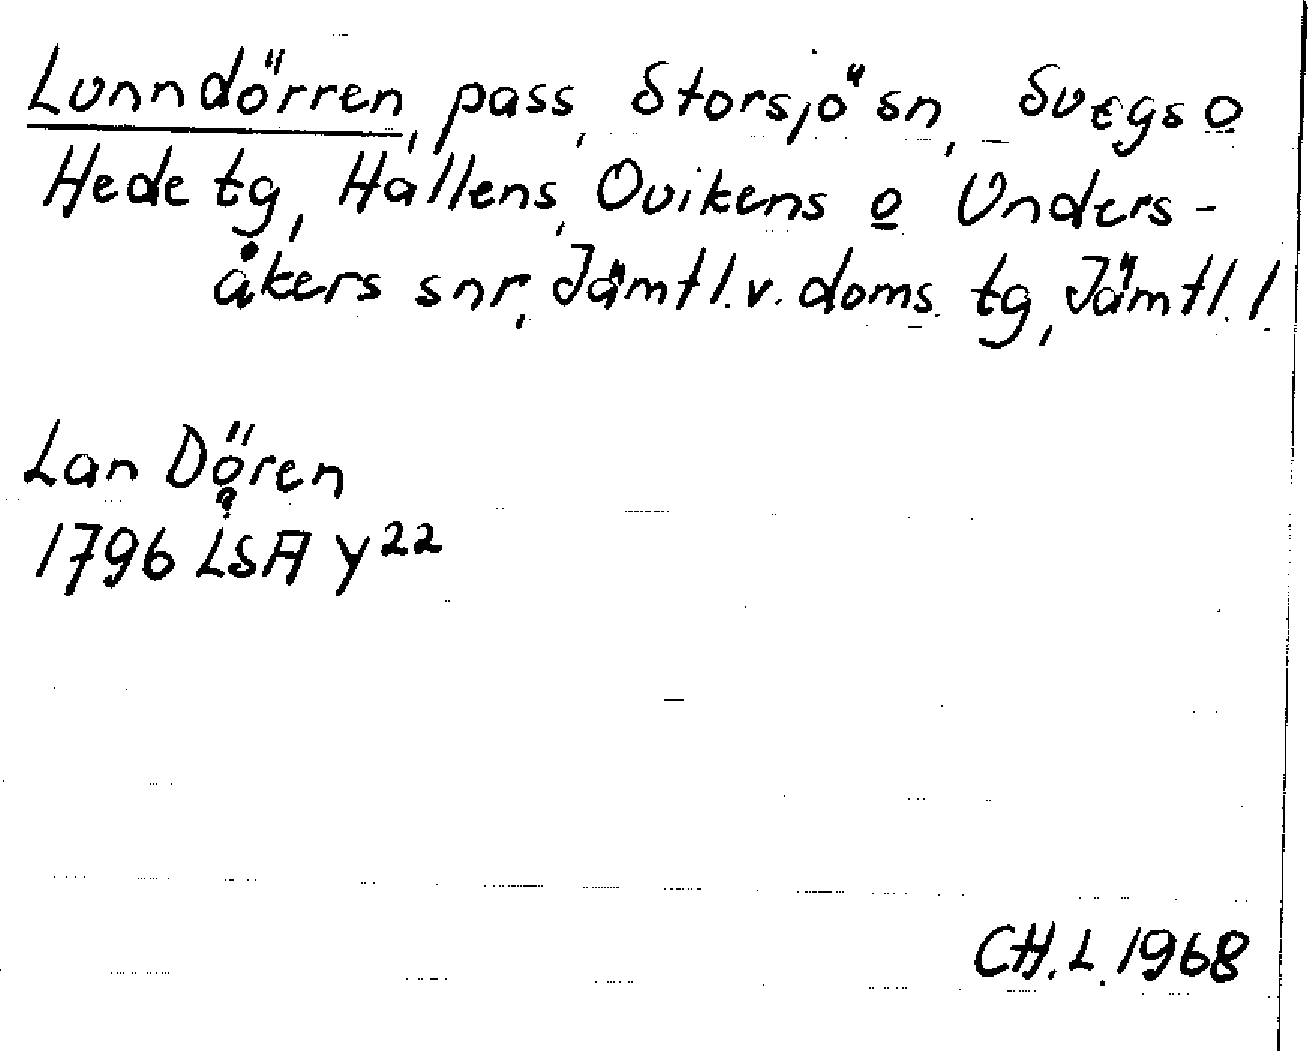 Lunndörren, pass, Storsjö sn, Svegs o
Hede tg, Hallens, Ovikens o Unders-
åkers snr, Jämtl. v. doms. tg, Jämtl. l.
Lan Dören
1796 LSA Y22
CH.L. 1968